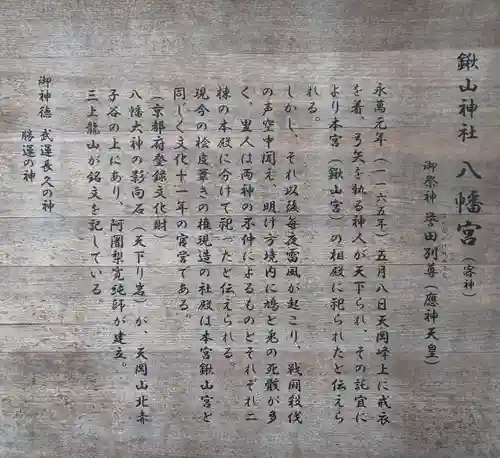 鍬山神社 八幡宮（客神）
御祭神 誉田別尊（應神天皇）
永萬元年（一一六五年）五月八日天岡峰上に戒衣
を着、弓矢を執る神人が天下られ、その託宣に
より本宮（鍬山宮）の相殿に祀られたと伝えら
れる。
しかし、それ以後毎夜雷風が起こり、戦闘殺伐
の声空中聞え、明け方境内に鳩と兎の死骸が多
く、里人は両神の不仲によるものとそれぞれ二
棟の本殿に分けて祀ったと伝えられる。
現今の桧皮葺きの権現造の社殿は本宮鍬山宮と
同じく文化十一年の官営である。
（京都府登録文化財）
八幡大神の影向石（天下り岩）が、天岡山北赤
子谷の上にあり、阿闍梨寛純師が建立。
三上龍山が銘文を記している
御神徳 武運長久の神
勝運の神